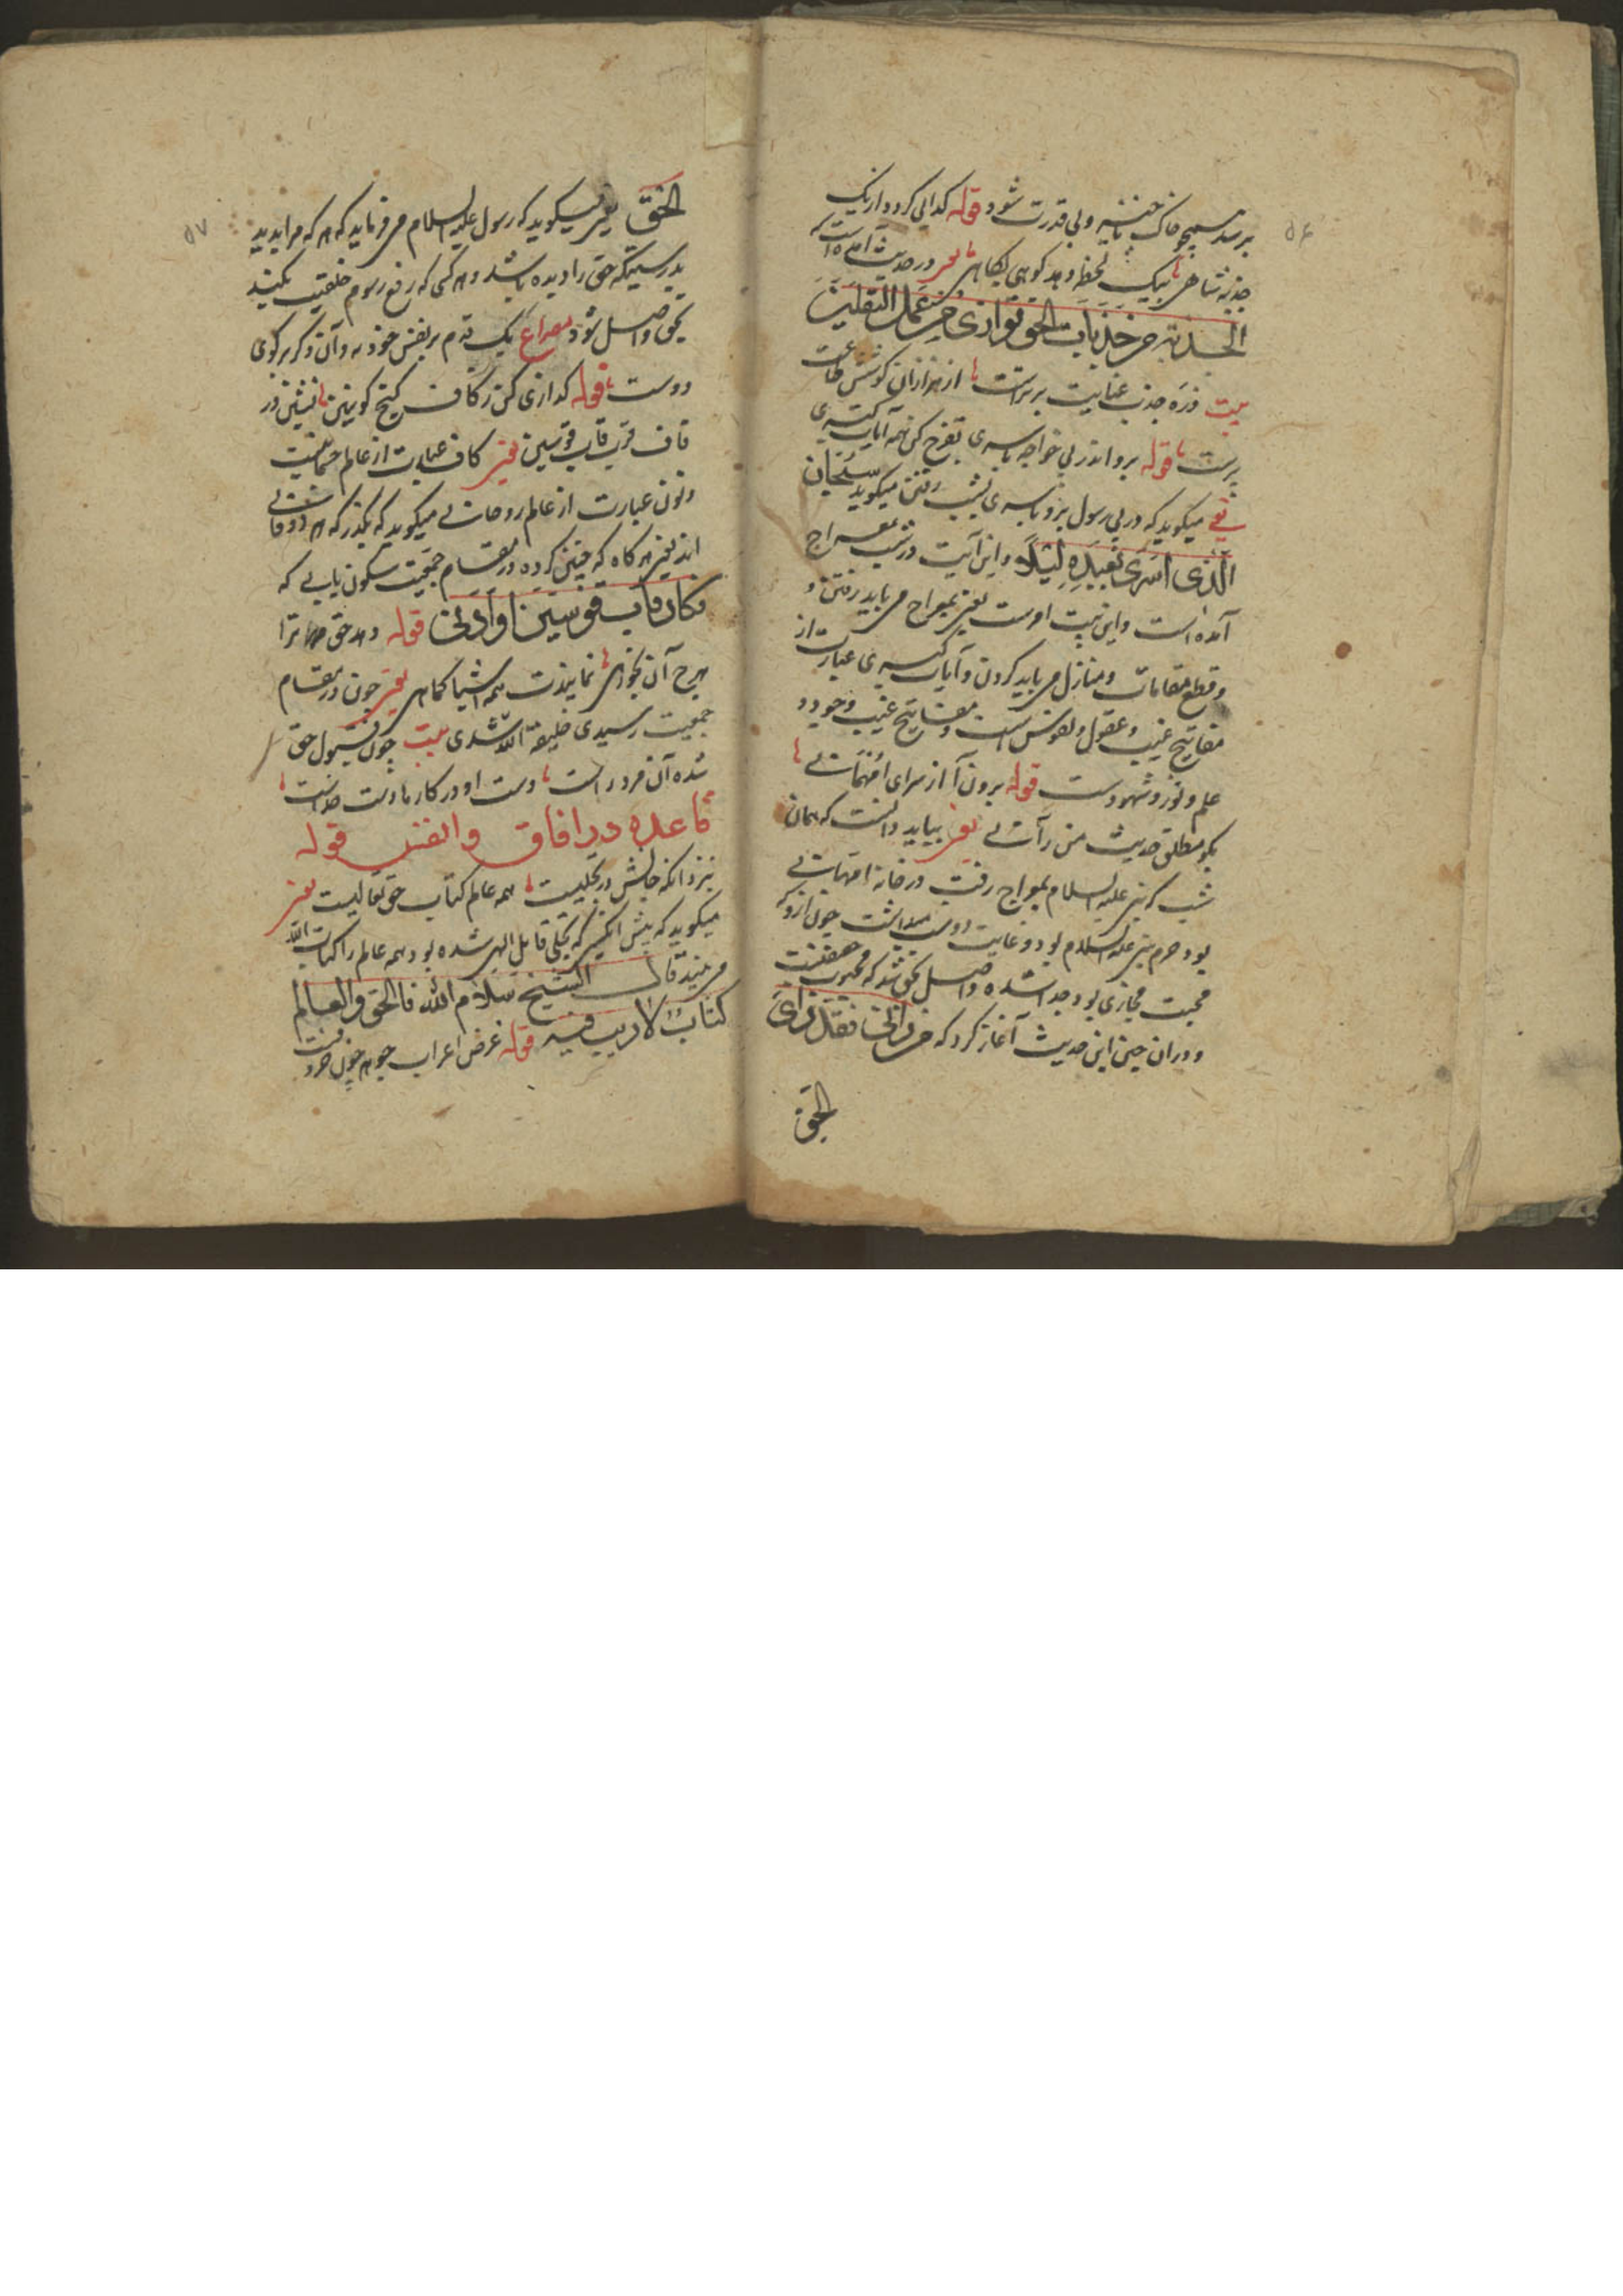 ۵۶
برسد همچو خاک خسته و بی قدرت شود قوله گدائی گردد از یک
جذبه شاهی بیک لحظه دهد کوهی بکاهی یعنی در حدیث آمده است که
الجذبة من جذبات الحق توازی من عمل الثقلین
بیت ذره جذب عنایت برترست از هزاران کوشش طاعت
پرست قوله برو اندر پی خواجه باسری تفرج کن همه آیات کبری
یعنی میگوید که در پی رسول برو باسری بشب رفتن میگوید سُبْحَانَ
الَّذِی اَسْرَی بِعَبْدِهِ لَیْلًا و این آیت در شب معراج
آمده است و این نیت اوست یعنی بمعراج می باید رفتن و
و قطع مقامات و منازل می باید کردن و آیات کبری عبارت از
مفاتیح غیب و عقول و نفوس است و مفاتیح غیب وجود و
علم و نور و شهودست قوله برون آ از سرای اُمّهانی
بگو مطلق حدیث من رآنی یعنی بباید دانست که همان
شب که نبی علیه السلام بمعراج رفت در خانه امهانی
بود و حرم نبی علیه السلام بود و غایت دوست میداشت چون ازو که
محبت مجازی بود جدا شده واصل بحق شد که محبوب حقیقیست
و دران حین این حدیث آغاز کرد که من رانی فقد رای
الحق
۵۷
الحَقَّ یعنی میگوید که رسول علیه السلام می فرماید که هر که مرا بدید
بدرستیکه حق را دیده باشد و هر کسی که رفع رسوم خلقیت بکند
بحق واصل شود مصراع یک قدم بر نفس خود نه وآن دگر بر کوی
دوست قوله گذاری کن ز کاف کنج کونین نشین در
قاف قرب قاب قوسین یعنی کاف عبارت از عالم جسمانیست
و نون عبارت از عالم روحانی میگوید که بگذر که هر دو فانی
اند یعنی هرگاه که چنین کرده در مقام جمعیت سکون یابی که
فکان قاب قوسین او ادنی قوله دهد حق مر ترا
هرچ آن بخواهی نمایندت همه اشیا کماهی یعنی چون در مقام
جمعیت رسیدی خلیفة الله شدی بیت چون قبول حق
شده آن مرد راست دست او در کارها دست خداست
قاعده در افاق وانفس قوله
بنزد آنکه جانش در تجلیست همه عالم کتاب حق تعالیست یعنی
میگوید که پیش انکس که تجلی قابل الهی شده بود همه عالم را کتاب الله
می بیند قال الشیخ سلام الله فالحق والعالم
کتابٌ لا ریب فیه قوله عرض اعراب جوهر چون حروفست